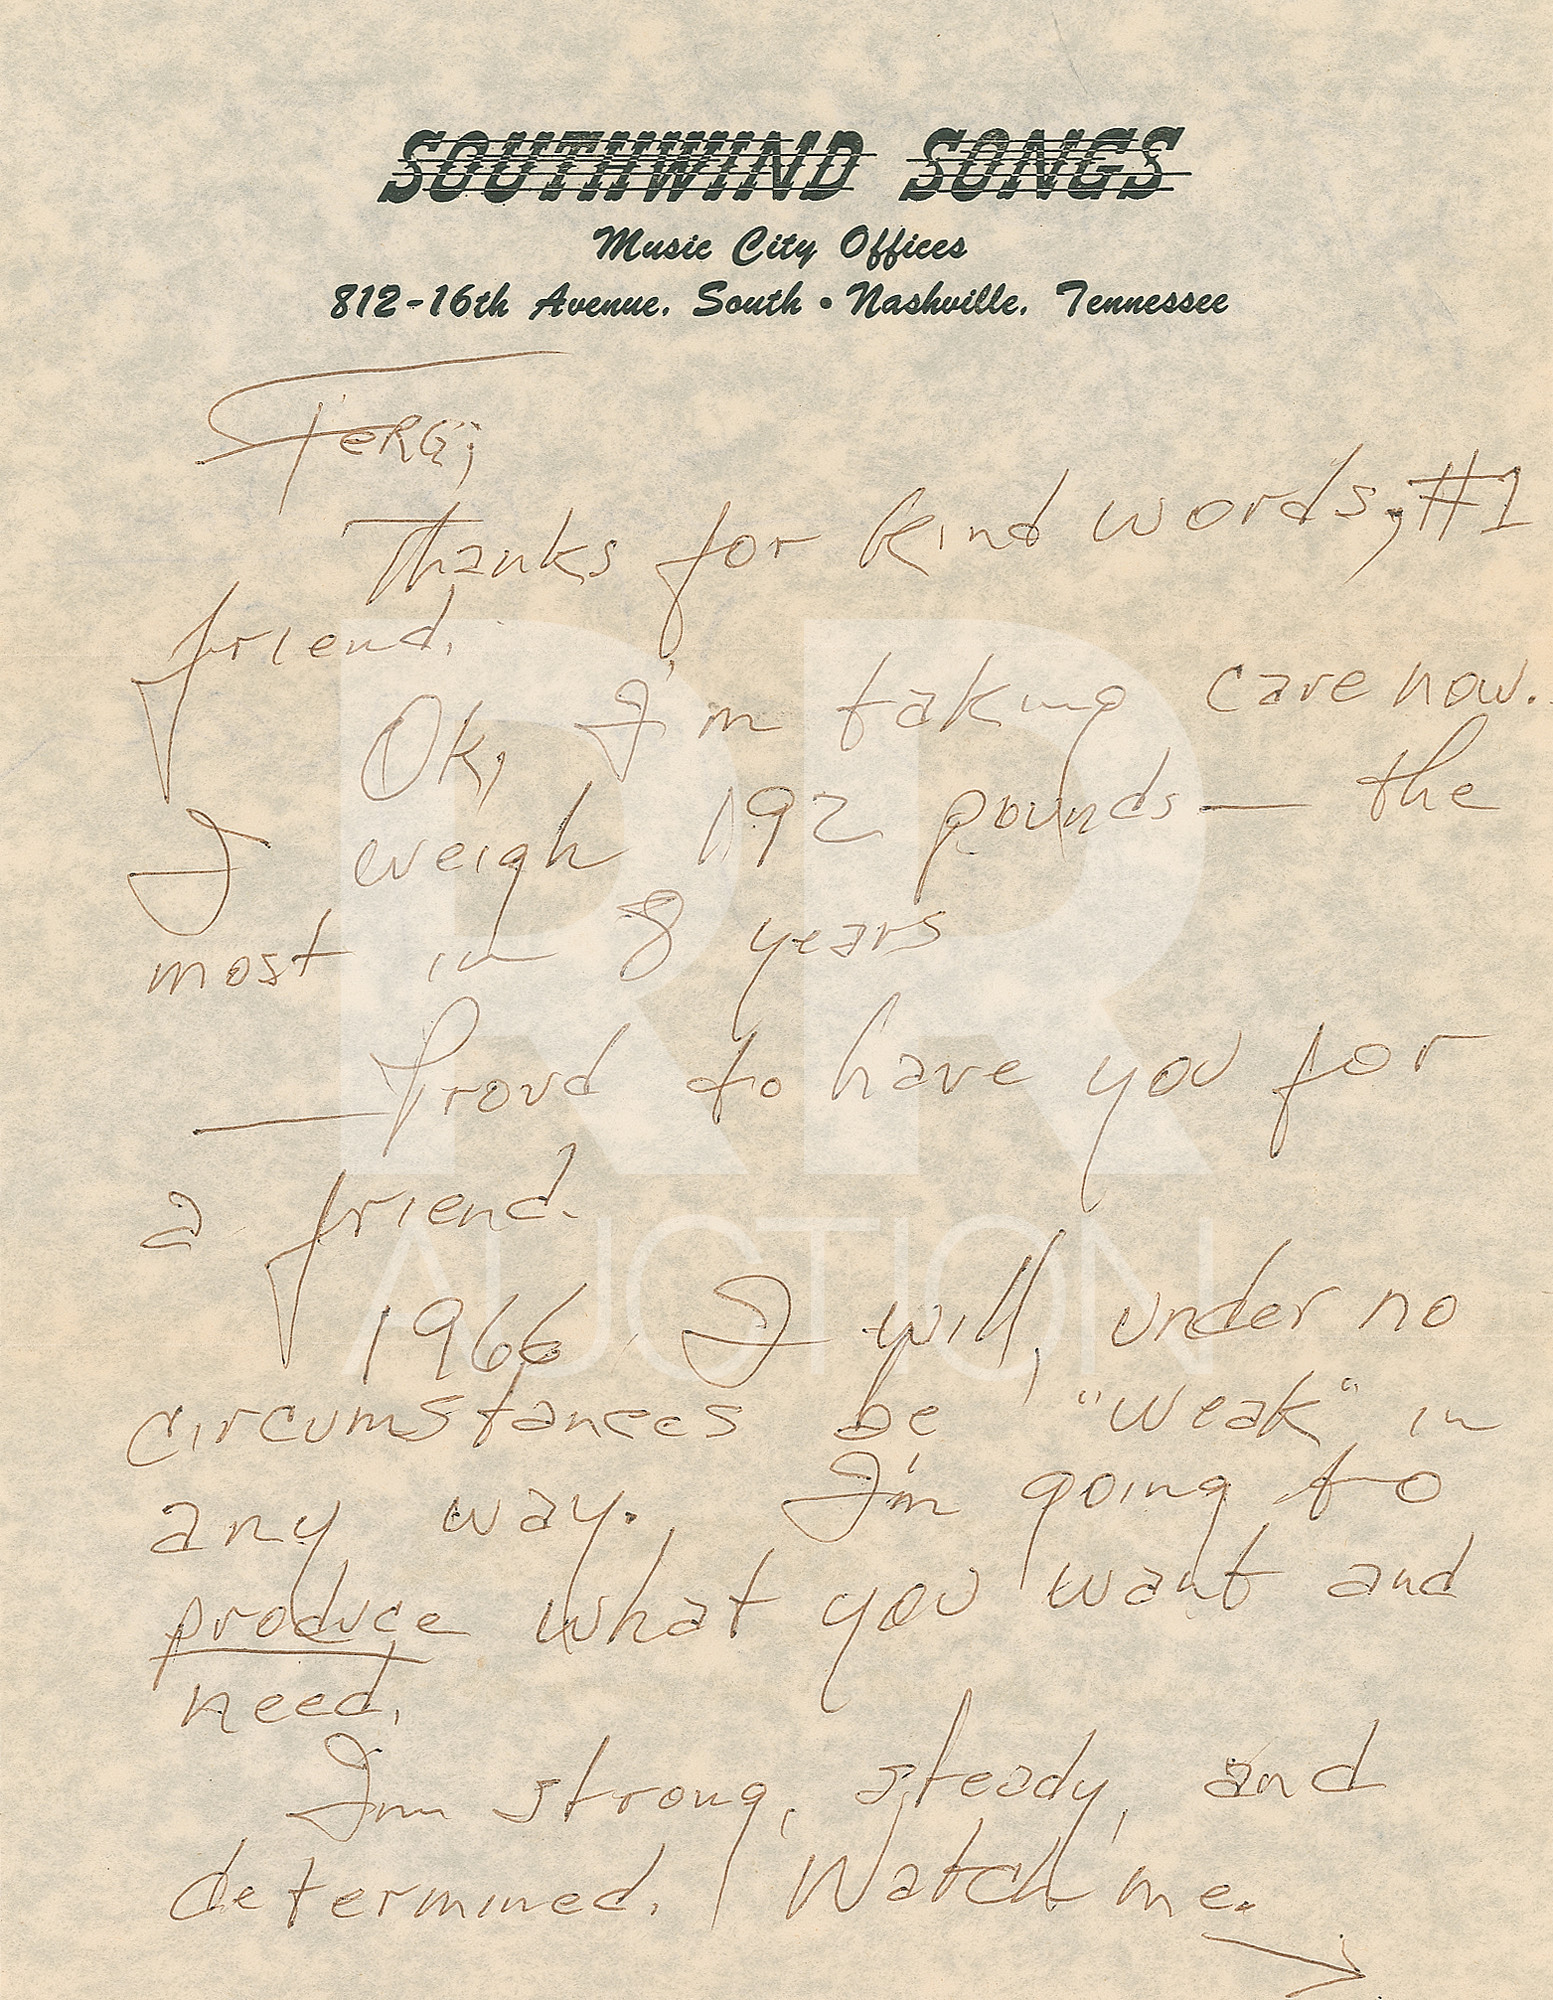 SOUTHWIND SONGS
Music City Offices
812-16th Avenue, South • Nashville, Tennessee
FeRG;
Thanks for kind words, #1
friend.
Ok, I'm taking care now.
I weigh 192 pounds — the
most in 8 years
— Proud to have you for
a friend.
1966 I will, under no
circumstances be "weak" in
any way. I'm going to
produce what you want and
need.
I'm strong, steady, and
determined. Watch me.
RR
AUCTION